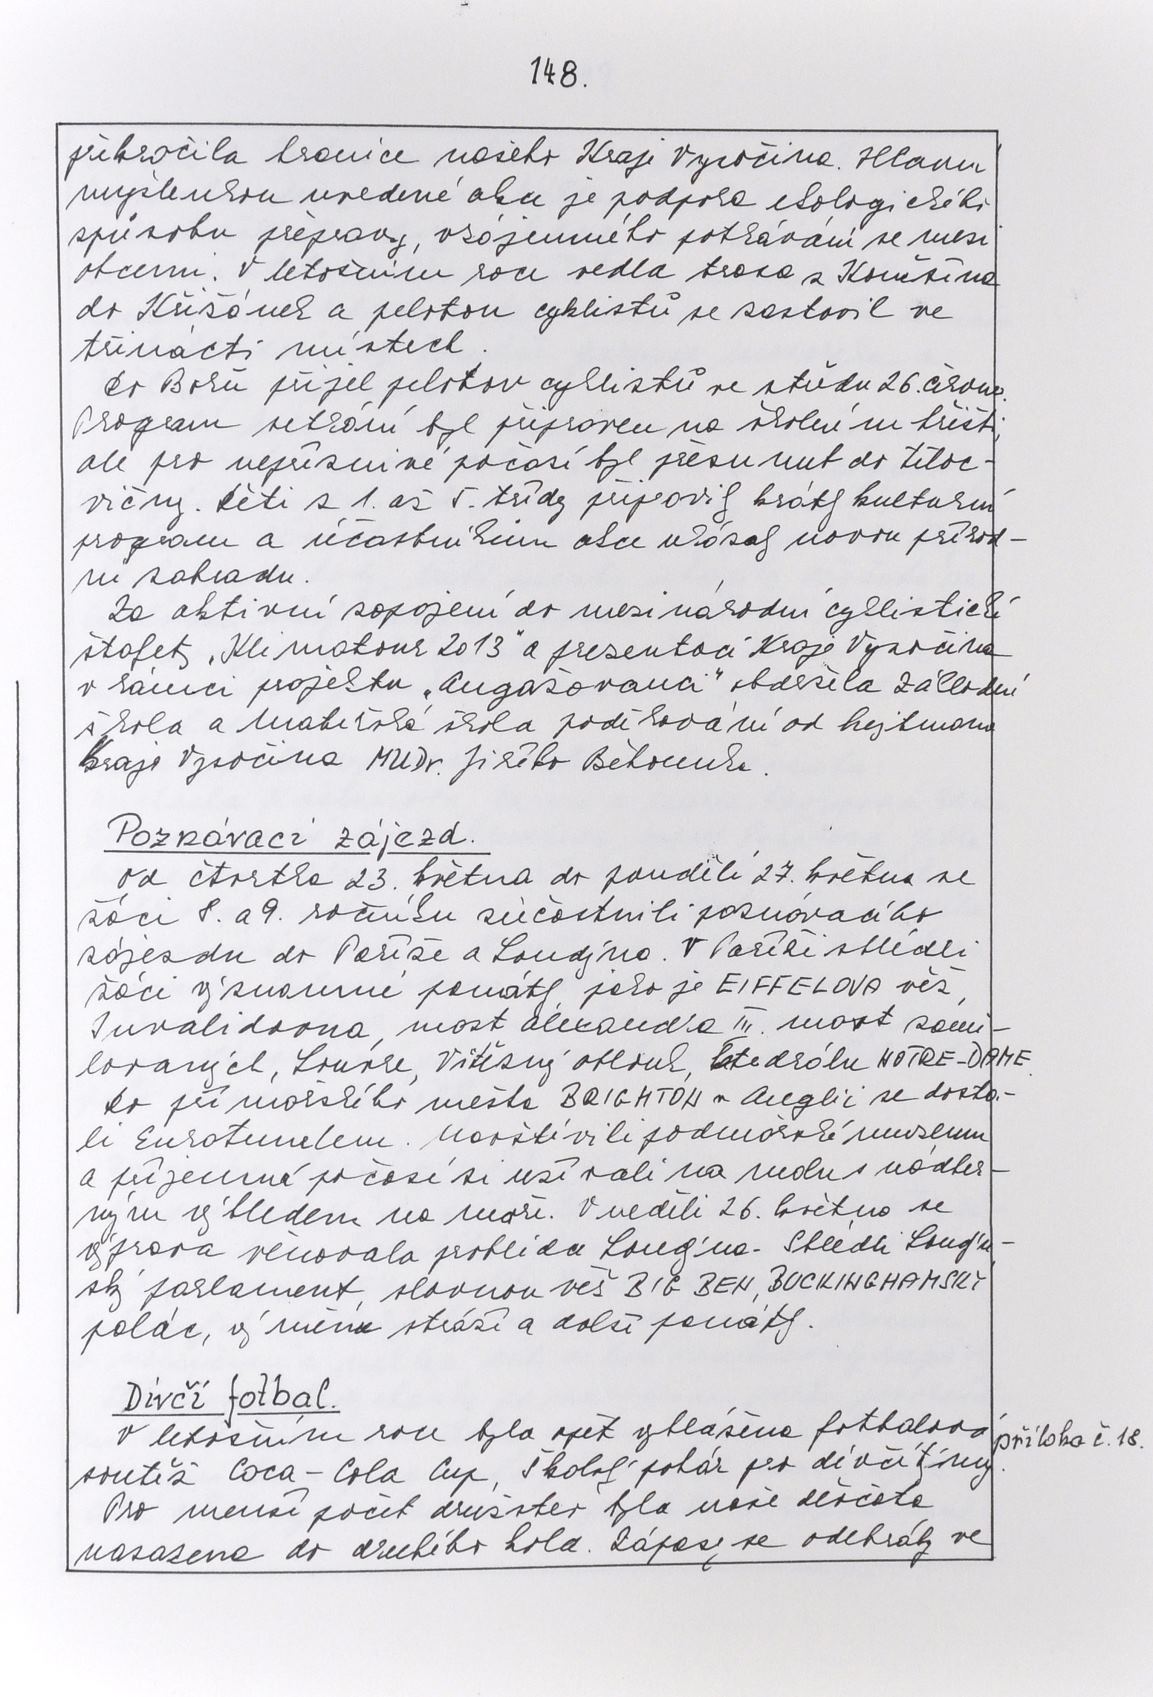 148.
překročila hranice našeho Kraje Vysočina. Hlavní
myšlenkou uvedené akce je podpora ekologického
způsobu přepravy, vzájemného potkávání se mezi
obcemi. V letošním roce vedla trasa z Kouřína
do Křižánek a peloton cyklistů se zastavil ve
třinácti místech.
Do Borů přijel peloton cyklistů ve středu 26. června.
Program setkání byl připraven na školním hřišti,
ale pro nepříznivé počasí byl přesunut do těloc-
vičny. Děti z 1. až 5. třídy připravily krátký kulturní
program a účastníkům akce ukázaly novou přírod-
ní zahradu.
Za aktivní zapojení do mezinárodní cyklistické
štafety „Klimatour 2013“ a prezentaci Kraje Vysočina
v rámci projektu „Angažovanci“ obdržela Základní
škola a Mateřská škola poděkování od hejtmana
kraje Vysočina MUDr. Jiřího Běhounka.
Poznávací zájezd.
Od čtvrtka 23. května do pondělí 27. května se
žáci 8. a 9. ročníku zúčastnili poznávacího
zájezdu do Paříže a Londýna. V Paříži shlédli
žáci významné památky, jako je EIFFELOVA věž,
Invalidovna, most Alexandra III. most zami-
lovaných, Louvre, Vítězný oblouk, katedrálu NOTRE-DAME.
Do přímořského města BRIGHTON v Anglii se dosta-
li Eurotunelem. Navštívili podmořské muzeum
a příjemné počasí si užívali na molu s nádher-
ným výhledem na moře. V neděli 26. května se
výprava věnovala prohlídce Londýna. Shlédli Londýn-
ský parlament, slavnou věž BIG BEN, BUCKINGHAMSKÝ
palác, výměnu stráží a další památky.
Dívčí fotbal.
V letošním roce byla opět vyhlášena fotbalová
příloha č. 18.
soutěž Coca-Cola Cup, Školský pohár pro dívčí týmy.
Pro menší počet družstev byla naše děvčata
nasazena do druhého kola. Zápasy se odehrály ve